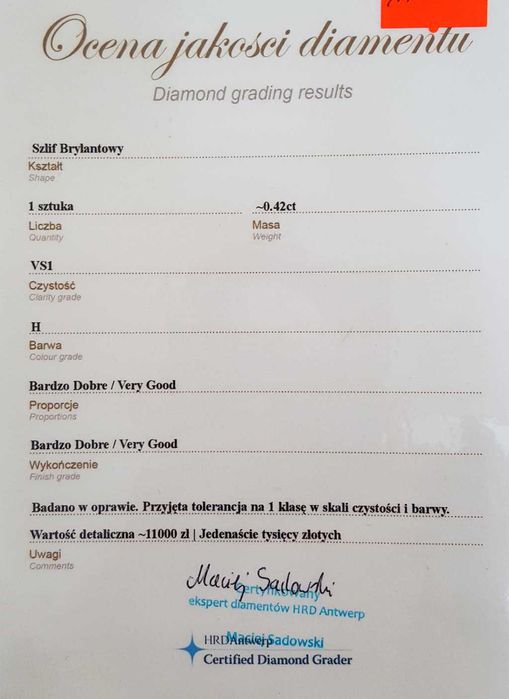 Ocena jakości diamentu
Diamond grading results
Szlif Brylantowy
Kształt
Shape
1 sztuka ~0.42ct
Liczba Masa
Quantity Weight
VS1
Czystość
Clarity grade
H
Barwa
Colour grade
Bardzo Dobre / Very Good
Proporcje
Proportions
Bardzo Dobre / Very Good
Wykończenie
Finish grade
Badano w oprawie. Przyjęta tolerancja na 1 klasę w skali czystości i barwy.
Wartość detaliczna ~11000 zł | Jedenaście tysięcy złotych
Uwagi
Comments
Maciej Sadowski
Certyfikowany
ekspert diamentów HRD Antwerp
Maciej Sadowski
HRD Antwerp
Certified Diamond Grader